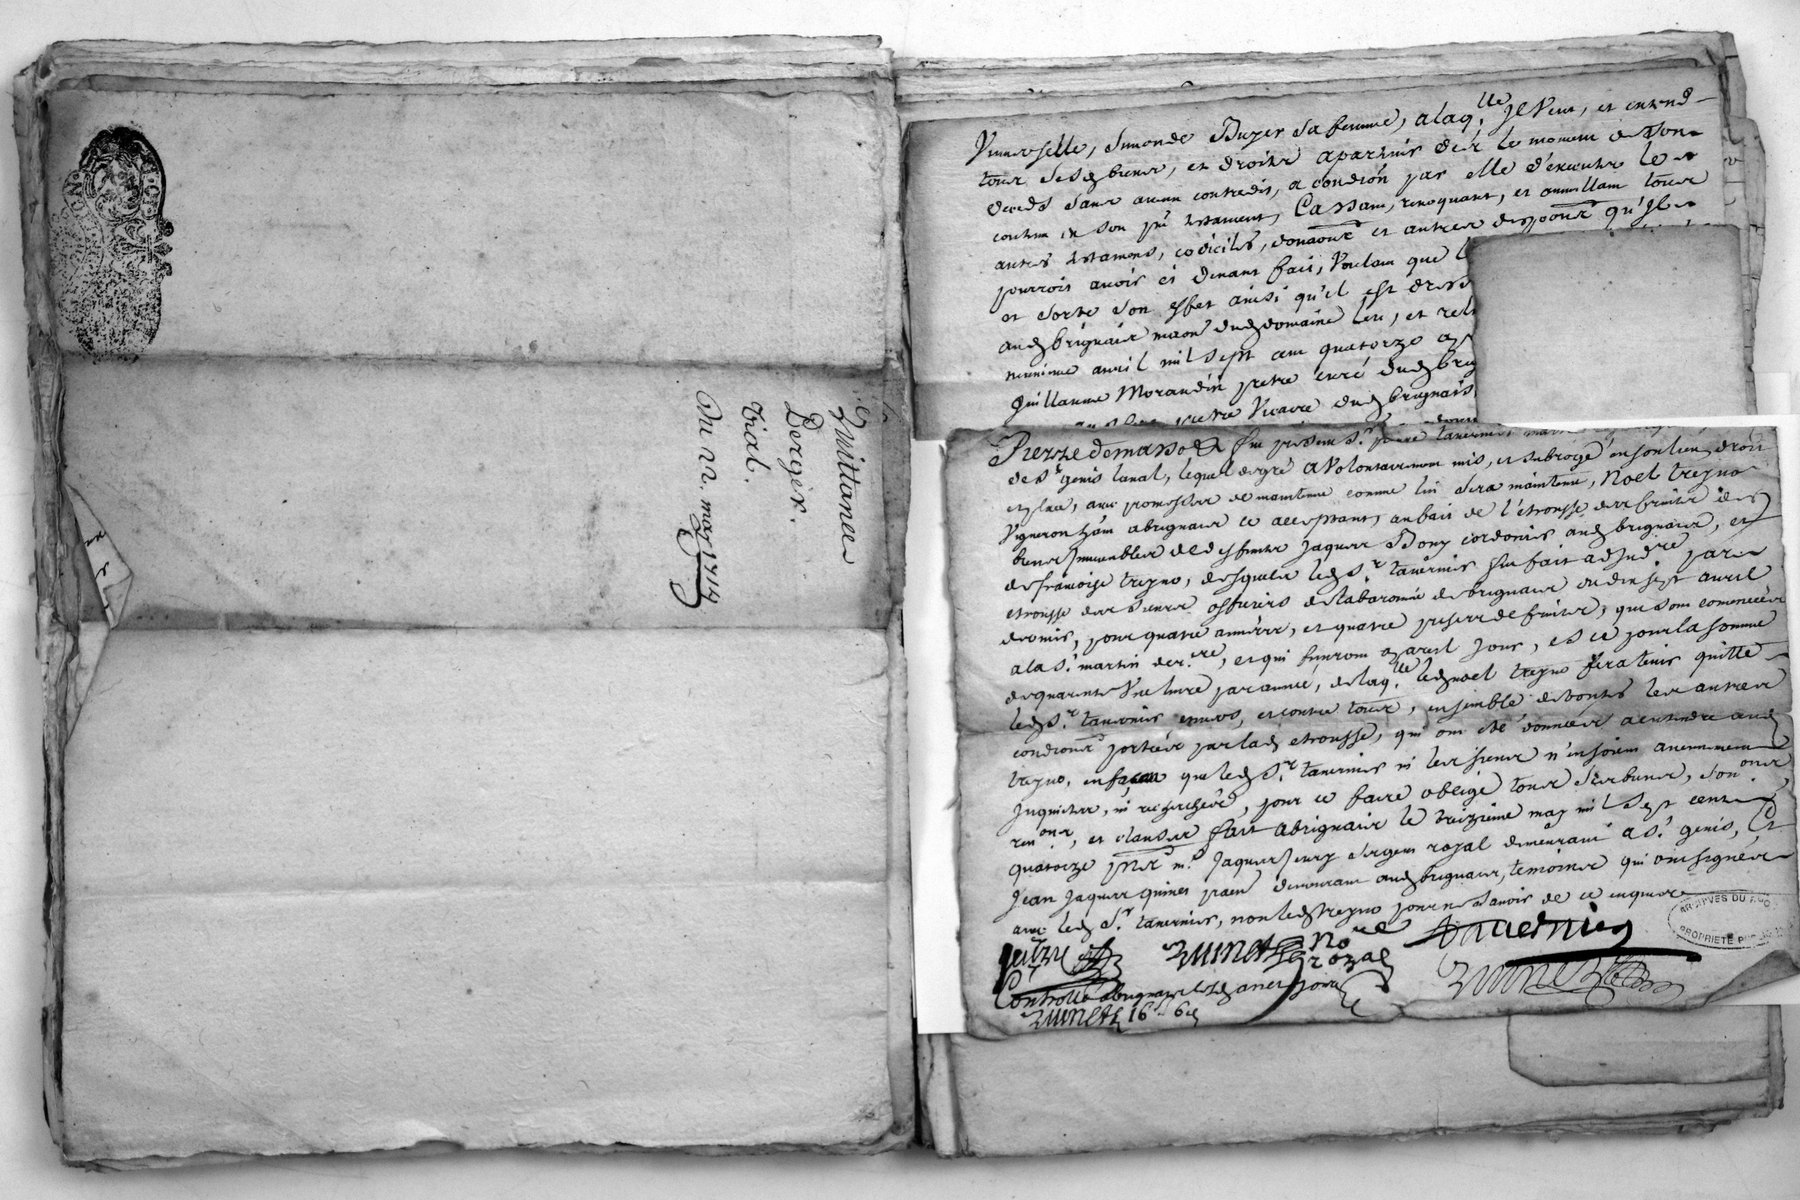 Quittance
Bergier.
Vial.
Du 22. may 1714
Simonde Buyer sa femme, a laq.lle Il veut, et entend
tous sesd biens, et droits apartenir dez le moment de son
deceds sans aucun contredit, a condion par elle d'executer le
contenu en son pnt testament, Cassant, revoquant, et annullant tous
autres testamens, codiciles, donaons et autres disposons qu'Il
pourroit avoir ci devant fait, Voulant que
et sorte son effet ainsi qu'il est
aud brignais maon dud domaine leu, et
avril mil sept cent quatorze
Guillaume Morandin pretre curé dud
pretre Vicaire dud brignais,
Pierre
de St genis laval, lequel de gré a Volontairement mis, et subrogé en son lieu, droit
et place, avec promesse de maintenue comme lui sera maintenu, Noel treyno
Vigneron hant a brignais ce acceptant, au bail de l'etrousse des fruits des
biens Immeubles de deffunts Jaques Bony cordonier aud brignais, et
de francoise treyno, desquels led Sr tavernier s'est fait adjuger par
etrousse des sieurs officiers de la baronnie de brignais du dix sept avril
dernier, pour quatre années, et quatre prises de fruits, qui sont comencées
a la St martin der.re, et qui finiront a pareil jour, et ce pour la somme
de quarante Une livre par année, de laq.lle led noel treyno sera tenir quitte
led Sr tavernier envers, et contre tous, ensemble de toutes les autres
condions portées par lad etrousse, qui ont eté données a entendre aud
treyno, en facon que led Sr tavernier ni les siens n'en soient aucunement
Inquietez, ni recherchés, pour ce faire oblige tous ses biens, son.ons
ren.ons, et clauses fait a brignais le treizieme may mil sept cent
quatorze pnts me Jaques Jeury sergent royal demeurant a St genis, Et
Jean Jaques quinet demeurant aud brignais, temoins qui ont signés
avec led Sr tavernier, non led treyno pour ne scavoir de ce enquis
Tavernier
Nore
royal
Controllé a brignais led jour
ARCHIVES DU RHONE
PROPRIETE PUBLIQUE